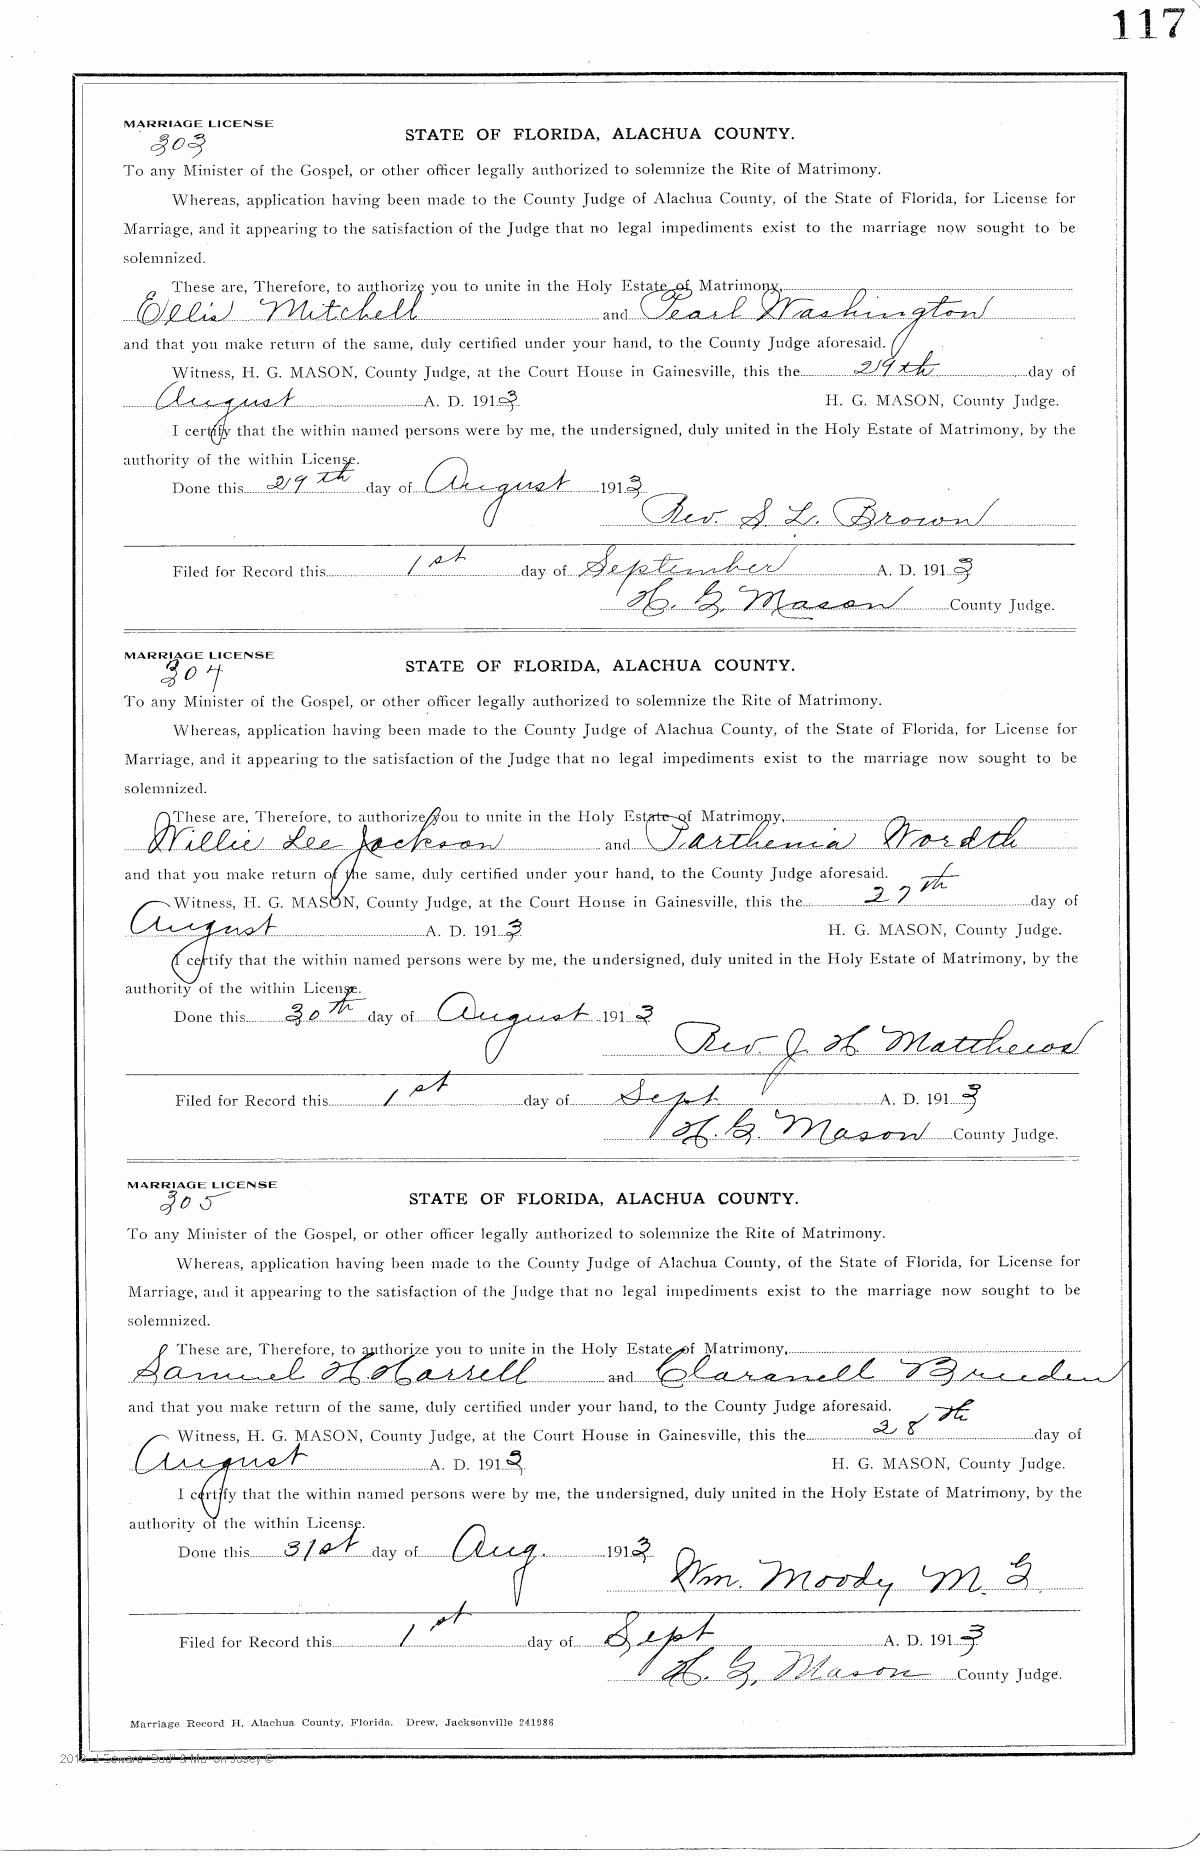 117
MARRIAGE LICENSE
303
STATE OF FLORIDA, ALACHUA COUNTY.
To any Minister of the Gospel, or other officer legally authorized to solemnize the Rite of Matrimony.
Whereas, application having been made to the County Judge of Alachua County, of the State of Florida, for License for
Marriage, and it appearing to the satisfaction of the Judge that no legal impediments exist to the marriage now sought to be
solemnized.
These are, Therefore, to authorize you to unite in the Holy Estate of Matrimony,
Ellis Mitchell and Pearl Washington
and that you make return of the same, duly certified under your hand, to the County Judge aforesaid.
Witness, H. G. MASON, County Judge, at the Court House in Gainesville, this the 29th day of
August A. D. 1913 H. G. MASON, County Judge.
I certify that the within named persons were by me, the undersigned, duly united in the Holy Estate of Matrimony, by the
authority of the within License.
Done this 29th day of August 1913
Rev. S. L. Brown
Filed for Record this 1st day of September A. D. 1913
H. G. Mason County Judge.
MARRIAGE LICENSE
304
STATE OF FLORIDA, ALACHUA COUNTY.
To any Minister of the Gospel, or other officer legally authorized to solemnize the Rite of Matrimony.
Whereas, application having been made to the County Judge of Alachua County, of the State of Florida, for License for
Marriage, and it appearing to the satisfaction of the Judge that no legal impediments exist to the marriage now sought to be
solemnized.
These are, Therefore, to authorize you to unite in the Holy Estate of Matrimony,
Willie Lee Jackson and Parthenia Wordth
and that you make return of the same, duly certified under your hand, to the County Judge aforesaid.
Witness, H. G. MASON, County Judge, at the Court House in Gainesville, this the 27th day of
August A. D. 1913 H. G. MASON, County Judge.
I certify that the within named persons were by me, the undersigned, duly united in the Holy Estate of Matrimony, by the
authority of the within License.
Done this 30th day of August 1913
Rev. J. H. Matthews
Filed for Record this 1st day of Sept A. D. 1913
H. G. Mason County Judge.
MARRIAGE LICENSE
305
STATE OF FLORIDA, ALACHUA COUNTY.
To any Minister of the Gospel, or other officer legally authorized to solemnize the Rite of Matrimony.
Whereas, application having been made to the County Judge of Alachua County, of the State of Florida, for License for
Marriage, and it appearing to the satisfaction of the Judge that no legal impediments exist to the marriage now sought to be
solemnized.
These are, Therefore, to authorize you to unite in the Holy Estate of Matrimony,
Samuel H Harrell and Claranell Breeden
and that you make return of the same, duly certified under your hand, to the County Judge aforesaid.
Witness, H. G. MASON, County Judge, at the Court House in Gainesville, this the 28th day of
August A. D. 1913 H. G. MASON, County Judge.
I certify that the within named persons were by me, the undersigned, duly united in the Holy Estate of Matrimony, by the
authority of the within License.
Done this 31st day of Aug. 1913
Wm. Moody M. G.
Filed for Record this 1st day of Sept A. D. 1913
H. G. Mason County Judge.
Marriage Record H, Alachua County, Florida. Drew, Jacksonville 241986